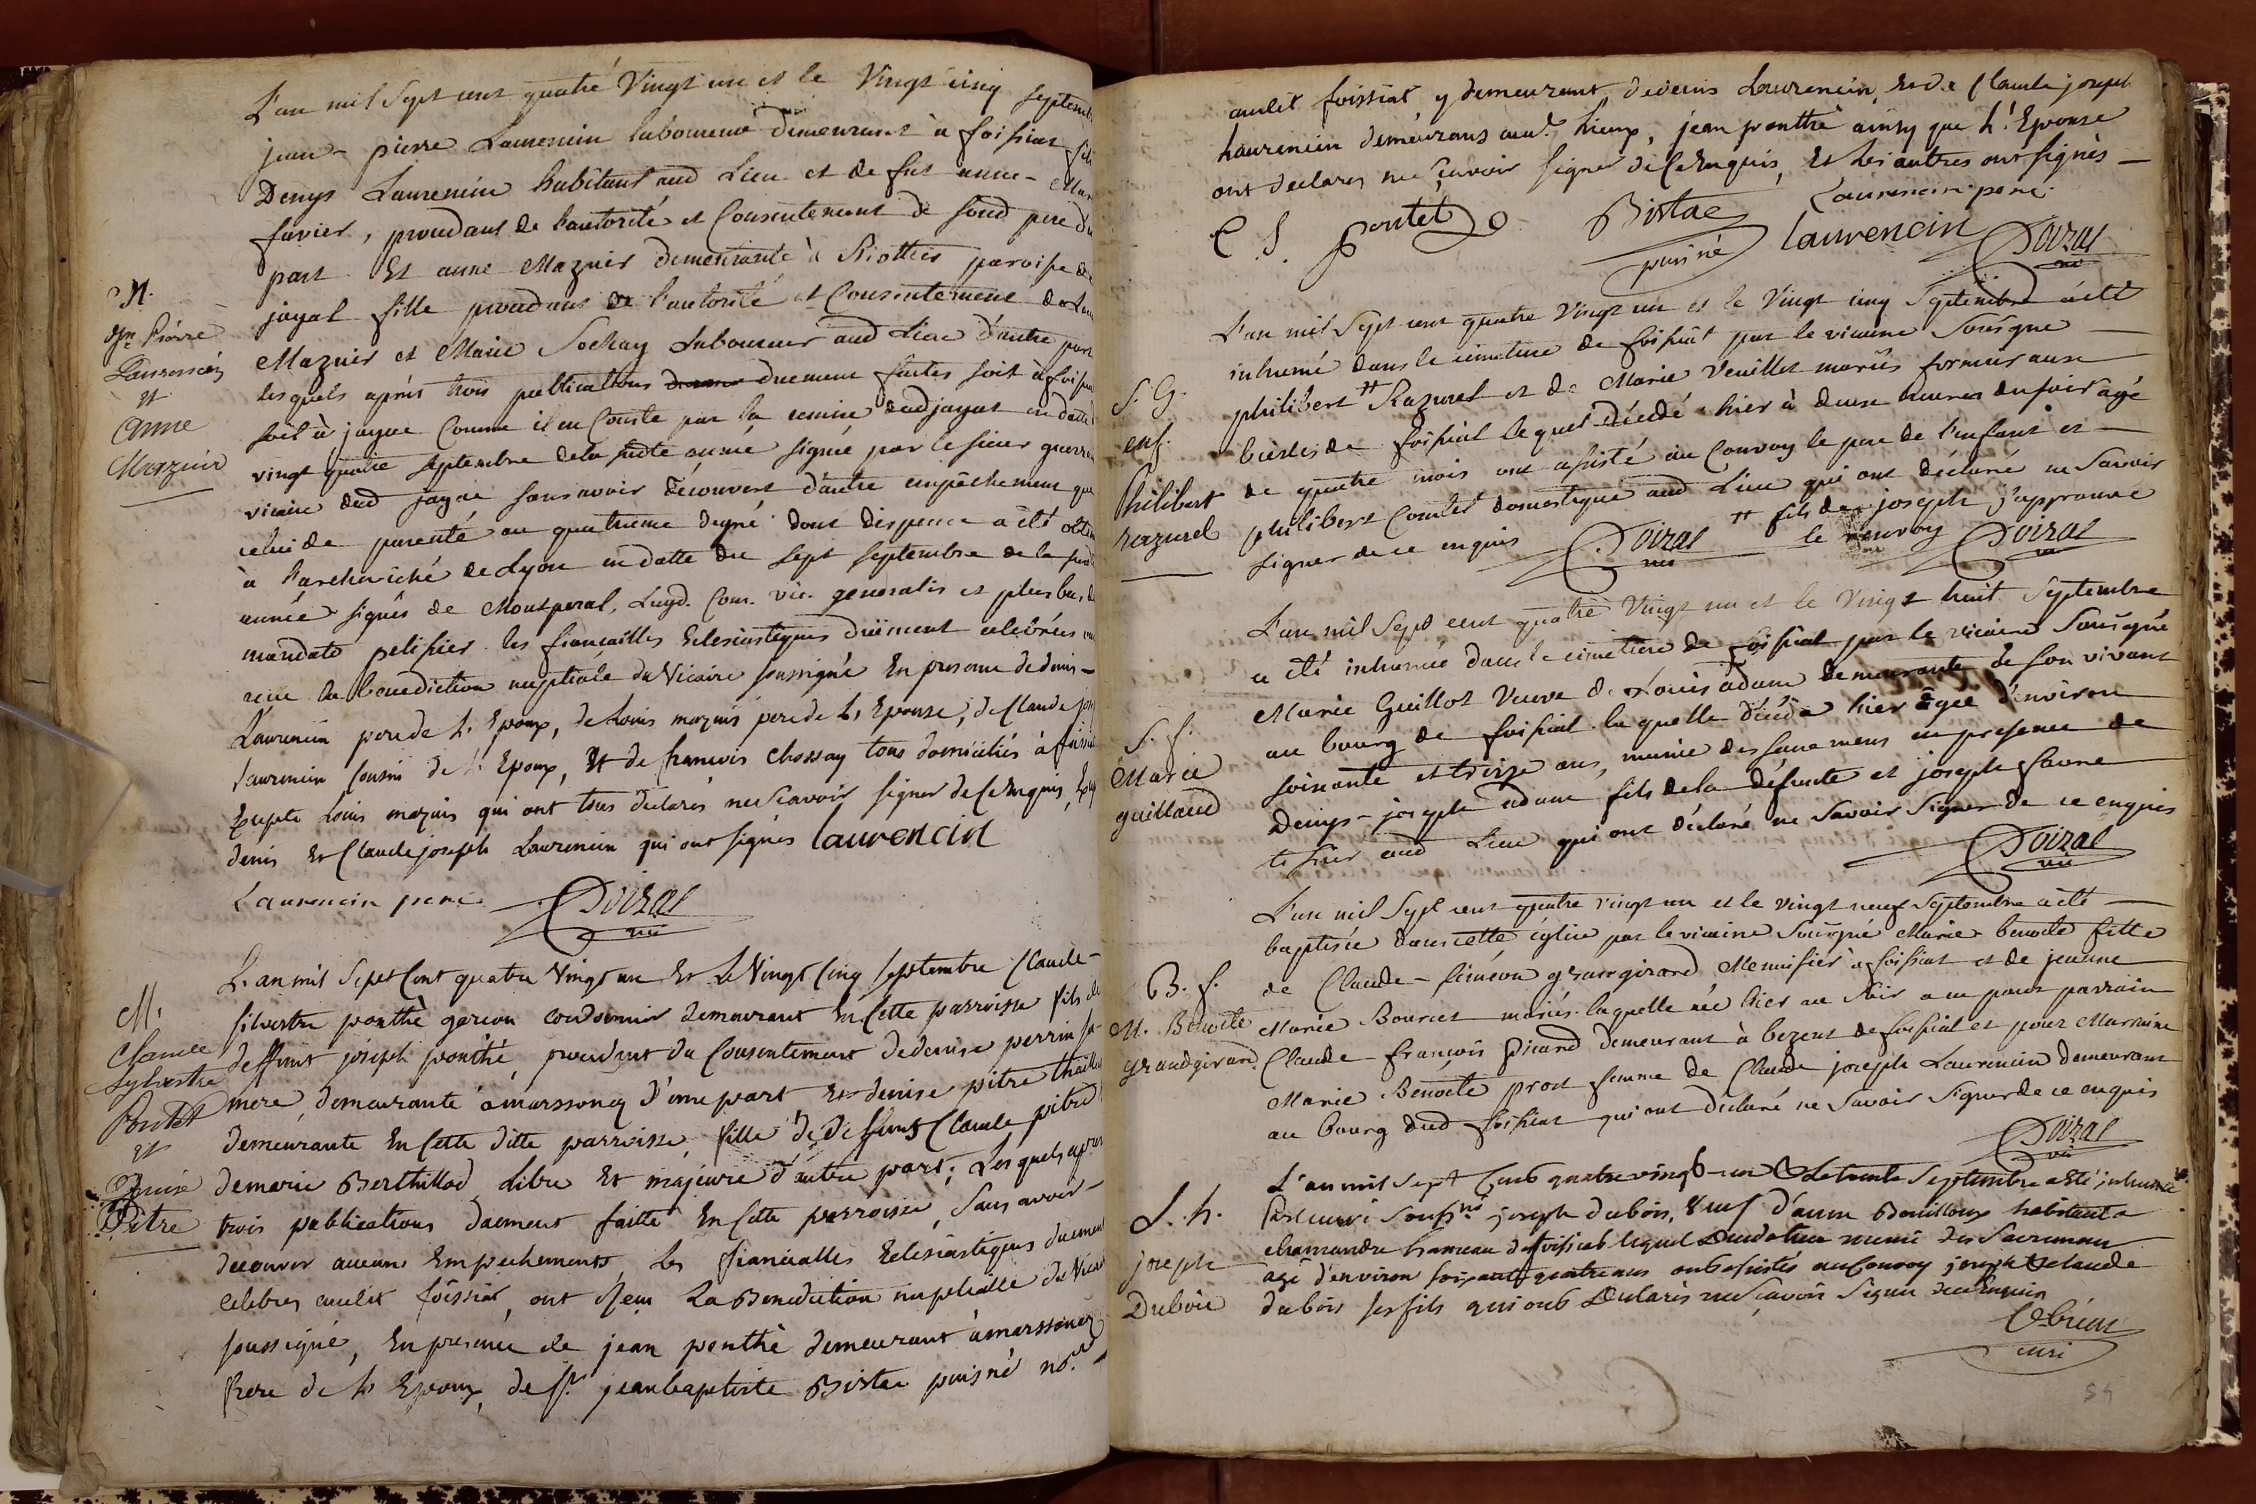 L'an mil Sept cent quatre Vingt un et le Vingt cinq septemb
jean-pierre Laurencin laboureur demeurant à foissiat fils
Denys Laurencin habitant aud Lieu et de fut anne-Marie
favier, procedant de l'autorité et Consentement de soud pere d'u
part. Et anne Mazuir demeurante à Riottier paroisse de
jayat fille procedant de l'autorité et Consentement de Lou
Mazuir et Marie Sochay Laboureur aud Lieu d'autre part
lesquels après trois publications duement faites soit à foissia
soit à jayat Comme il en Conste par la remise dud jayat en datte
vingt quatre septembre de la susdte année signée par le sieur guerr
vicaire dud jayat sans avoir découvert d'autre empêchement que
celui de parenté au quatrieme degré dont dispence a été obten
à l'archeveché de Lyon en datte du sept septembre de la sus
année signés de Montperal, Lugd. Com. vic. generalis et plus bas de
mandato pelissier. les fiancailles Eclesiastiques düement celebrées
recu la benediction nuptiale du Vicaire soussigné En presence de denis-
Laurencin pere de L'Epoux, de Louis mazuis pere de L'Epouse, de Claude jos
Laurencin Cousin de L'Epoux, Et de francois Chossay tous domiciliés à foissiat
Excepté Louis mazuis qui ont tous declarés ne scavoir signer de ce Enquis,
denis Et Claude joseph Laurencin qui ont signés laurencin
Laurencin pere Doizat
vic
M.
jn Pierre
Laurencin
et
Anne
Mazuir
L'an mil Sept Cent quatre Vingt un Et Le Vingt Cinq septembre Claude-
silvestre ponthé garcon cordonnier demeurant En Cette parroisse fils de
deffunt joseph ponthé, procedant du Consentement de denise perrin sa-
mere, demeurante à marssonas d'une part Et denise pitre thaille
demeurante En Cette ditte parroisse, fille de Deffunt Claude pitre
de marie Berthillod, Libre Et majeure d'autre part; Les quels apres
trois publications duement faitte En Cette parroisse, Sans avoir-
decouver aucuns Empechements, Les fiancialles Eclesiastiques duement
celebres audit foissiat, ont Reçu La Benediction nuptialle du Vicai
soussigné, En presence de jean ponthé demeurant à marssonas
frere de L'Epoux, de Sr. jean baptiste Bistac puisné nore.
M.
Claude
Sylvestre
Pontet
et
Denise
Pitre
audit foissiat y demeurant, de denis Laurencin Et de Claude joseph
Laurencin demeurans aud. Lieux, jean ponthé ainsy que L'Epouse
ont declarés ne scavoir signer de ce Enquis, Et Les autres ont signés -
C S. pontet Bistac puisné laurencin Laurencin pere
Doizat
vic
L'an mil Sept cent quatre Vingt un et le Vingt cinq Septembre a été
inhumé dans le cimetiere de foissiat par le vicaire Sousigné
philibert # Razurel et de Marie Veuillet mariés fermier aux
bierles de foissiat lequel décédé hier à deux heures du soir agé
de quatre mois ont assisté au Convoy le pere de l'enfant et -
philibert Comtet domestique aud Lieu qui ont déclaré ne savoir
signer de ce enquis Doizat # fils de joseph j'approuve
vic le renvoy Doizat
vic
S. G.
enf.
Philibert
razurel
L'an mil Sept cent quatre Vingt un et le Vingt huit Septembre
a été inhumée dans le cimetiere de foissiat par le vicaire Sousigné
Marie Guillot Veuve de Louis adam demeurante de son vivant
au bourg de foissiat laquelle décédée hier âgée d'environ
soixante et treize ans, munie des sacremens en presence de
Denys-joseph adam fils de la défunte et joseph favre
tissier aud Lieu qui ont déclaré ne Savoir Signer de ce enquis
Doizat
vic
S. f.
Marie
guillaud
L'an mil Sept cent quatre vingt un et le vingt neuf Septembre a été -
baptisée dans cette église par le vicaire Sousigné Marie benoite fille
de Claude-siméon grangirard Menuisier à foissiat et de jeanne
Marie Bourcet mariés laquelle née hier au Soir a eu pour parrain
Claude-francois Picard demeurant à bezent de foissiat et pour Marraine
Marie Benoite prost femme de Claude joseph Laurencin demeurant
au bourg dud foissiat qui ont déclaré ne Savoir Signer de ce enquis
Doizat
vic
B. f.
M. Benoite
grandgirard
L'an mil Sept Cent quatre vingt-un & Le trente Septembre a été inhumé
par curé Soussné joseph dubois, veuf d'anne Bouilloux habitant a
chamandre hameau de foissiat lequel deceda hier muni des Sacremens
agé d'environ soixante quatre ans ont assistés au Convoy joseph & claude
dubois ses fils qui ont Declarés ne Sçavoir Signer de ce Enquis
curé
S. h.
joseph
Duboie
54